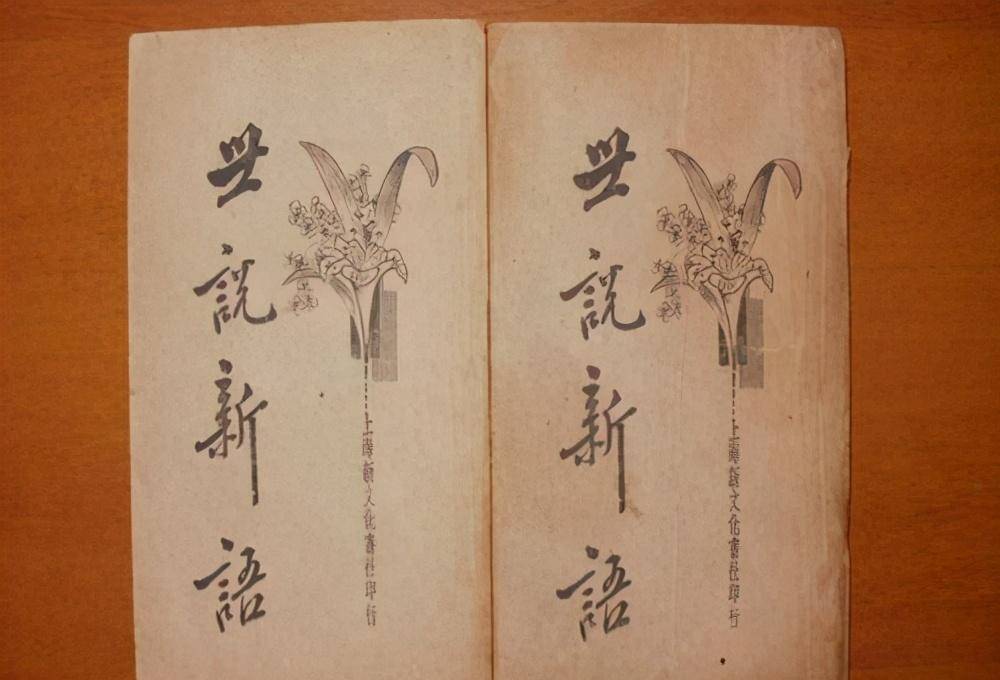 上海新文化書社印行
世說新語
上海新文化書社印行
世說新語